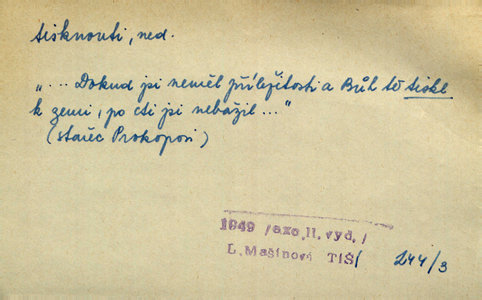 tisknouti, ned.
"... Dokud jsi neměl příležitosti a Bůh tě tiskl
k zemi, po cti jsi nebažil ..."
(stařec Prokopovi)
1949 /exc. II. vyd. /
L. Mašínová TIS/ 244/3